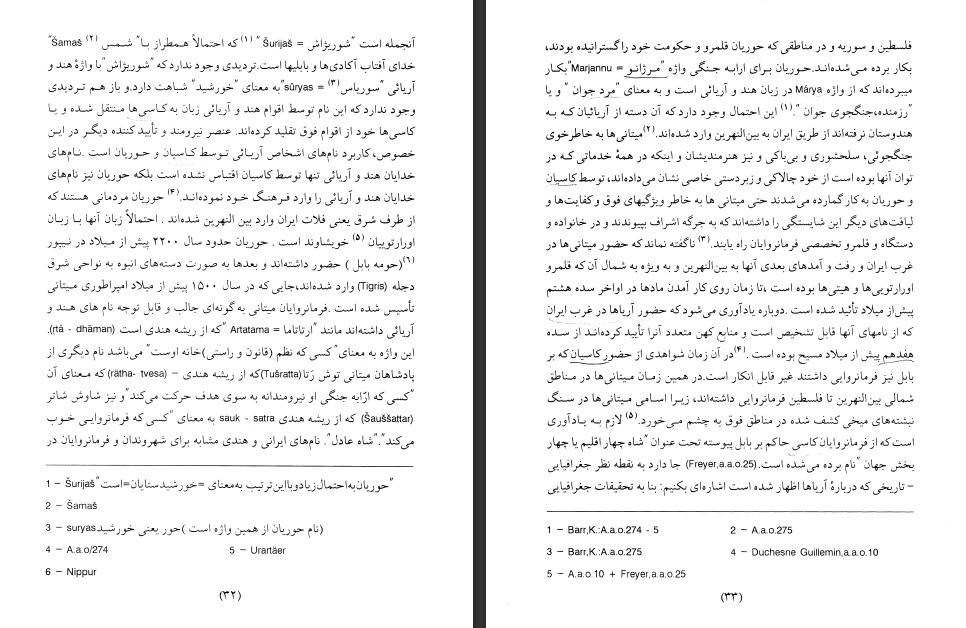 آنجمله است "شوریژاش = Šurijaš" (۱) که احتمالاً همطراز با" شمس (۲) Šamaš"
خدای آفتاب آکادی‌ها و بابلیها است.تردیدی وجود ندارد که "شوریژاش"با واژهٔ هند و
آریائی "سوریاس(۳) = sûryas"به معنای "خورشید" شباهت دارد.و باز هم تردیدی
وجود ندارد که این نام توسط اقوام هند و آریائی زبان به کاسی‌ها منتقل شده و یا
کاسی‌ها خود از اقوام فوق تقلید کرده‌اند. عنصر نیرومند و تأیید کننده دیگر در این
خصوص،کاربرد نام‌های اشخاص آریائی توسط کاسیان و حوریان است .نام‌های
خدایان هند و آریائی تنها توسط کاسیان اقتباس نشده است بلکه حوریان نیز نام‌های
خدایان هند و آریائی را وارد فرهنگ خود نموده‌اند.(۴) حوریان مردمانی هستند که
از طرف شرق یعنی فلات ایران وارد بین النهرین شده‌اند . احتمالاً زبان آنها با زبان
اورارتوییان (۵) خویشاوند است . حوریان حدود سال ۲۲۰۰ پیش از میلاد در نیپور
(۶)(حومه بابل ) حضور داشته‌اند و بعدها به صورت دسته‌های انبوه به نواحی شرق
دجله (Tigris) وارد شده‌اند،جایی که در سال ۱۵۰۰ پیش از میلاد امپراطوری میتانی
تأسیس شده است .فرمانروایان میتانی به گونه‌ای جالب و قابل توجه نام های هند و
آریائی داشته‌اند مانند "ارتاتاما = Artatama "که از ریشه هندی است (rtá - dhāman).
این واژه به معنای"کسی که نظم (قانون و راستی)خانه اوست"می‌باشد نام دیگری از
پادشاهان میتانی توش رَتا(Tušratta)که از ریشه هندی – (rätha- tvesa)که معنای آن
"کسی که ارّابه جنگی او نیرومندانه به سوی هدف حرکت می‌کند"و نیز شاوش شاتر
(Šauššattar) که از ریشه هندی sauk - satra به معنای "کسی که فرمانروایی خوب
می‌کند"."شاه عادل". نام‌های ایرانی و هندی مشابه برای شهروندان و فرمانروایان در
1 – Šurijaš"حوریان به احتمال زیاد و با این ترتیب به معنای =خورشید ستایان=است"
2 – Šamaš
3 – suryasنام حوریان از همین واژه است )حور یعنی خورشید)
4 – A.a.o/274 5 – Urartäer
6 – Nippur
(۳۲)
فلسطین و سوریه و در مناطقی که حوریان قلمرو و حکومت خود را گسترانیده بودند،
بکار برده می‌شده‌اند.حوریان برای ارابه جنگی واژه "مرژانو = Marjannu"بکار
میبرده‌اند که از واژه Márya در زبان هند و آریائی است و به معنای "مرد جوان " و یا
"رزمنده،جنگجوی جوان ".(۱) این احتمال وجود دارد که آن دسته از آریائیان که به
هندوستان نرفته‌اند از طریق ایران به بین‌النهرین وارد شده‌اند.(۲)میتانی‌ها به خاطرخوی
جنگجوئی، سلحشوری و بی‌باکی و نیز هنرمندیشان و اینکه در همهٔ خدماتی که در
توان آنها بوده است از خود چالاکی و زبردستی خاصی نشان می‌داده‌اند، توسط کاسیان
و حوریان به کار گمارده می‌شدند حتی میتانی ها به خاطر ویژگیهای فوق و کفایت‌ها و
لیاقت‌های دیگر این شایستگی را داشته‌اند که به جرگه اشراف بپیوندند و در خانواده و
دستگاه و قلمرو تخصصی فرمانروایان راه یابند.(۳) ناگفته نماند که حضور میتانی‌ها در
غرب ایران و رفت و آمدهای بعدی آنها به بین‌النهرین و به ویژه به شمال آن که قلمرو
اورارتویی‌ها و هیتی‌ها بوده است ،تا زمان روی کار آمدن مادها در اواخر سده هشتم
پیش‌از میلاد تأئید شده است .دوباره یادآوری می‌شود که حضور آریاها در غرب ایران
که از نامهای آنها قابل تشخیص است و منابع کهن متعدد آنرا تأیید کرده‌اند.از سده
هفدهم پیش از میلاد مسیح بوده است .(۴)در آن زمان شواهدی از حضور کاسیان که بر
بابل نیز فرمانروایی داشتند غیر قابل انکار است.در همین زمان میتانی‌ها در مناطق
شمالی بین‌النهرین تا فلسطین فرمانروایی داشته‌اند، زیرا اسامی میتانی‌ها در سنگ
نبشته‌های میخی کشف شده در مناطق فوق به چشم می‌خورد.(۵) لازم به یادآوری
است که از فرمانروایان کاسی حاکم بر بابل پیوسته تحت عنوان "شاه چهار اقلیم یا چهار
بخش جهان "نام برده می‌شده است.(Freyer,a.a.o.25) جا دارد به نقطه نظر جغرافیایی
– تاریخی که دربارهٔ آریاها اظهار شده است اشاره‌ای بکنیم: بنا به تحقیقات جغرافیایی
1 – Barr,K.:A.a.o.274 - 5 2 – A.a.o.275
3 – Barr,K.:A.a.o.275 4 – Duchesne Guillemin,a.a.o.10
5 – A.a.o.10 + Freyer,a.a.o.25
(۳۳)